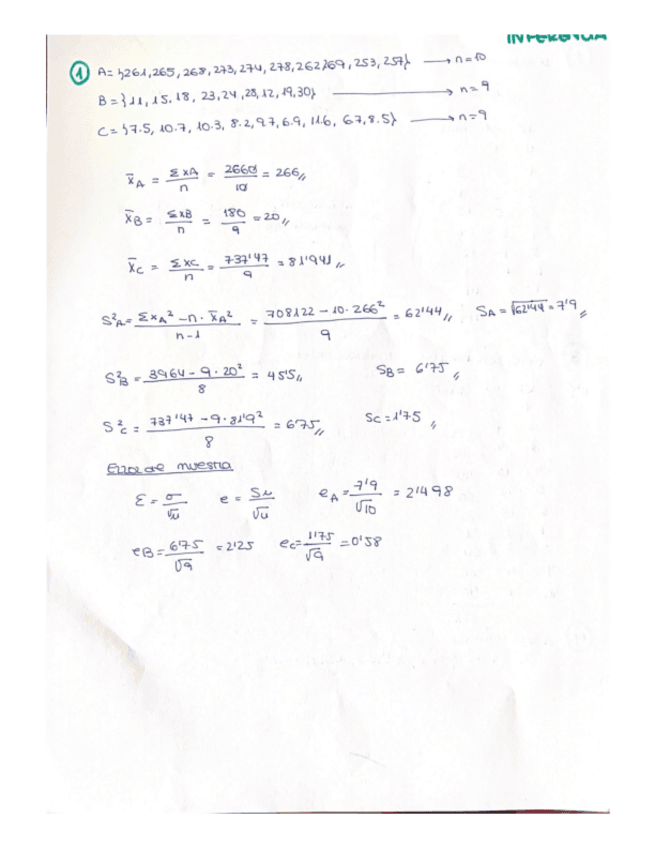 INFERENCIA
1 A = {261, 265, 268, 273, 274, 278, 262, 269, 253, 257} → n = 10
B = {11, 15, 18, 23, 24, 28, 12, 19, 30} → n = 9
C = {7.5, 10.7, 10.3, 8.2, 9.7, 6.9, 11.6, 6.7, 8.5} → n = 9
x̄A = ΣxA / n = 2660 / 10 = 266
x̄B = ΣxB / n = 180 / 9 = 20
x̄C = ΣxC / n = 737'47 / 9 = 81'941
S²A = ΣxA² - n · x̄A² / n-1 = 708122 - 10 · 266² / 9 = 62'44 SA = √62'44 = 7'9
S²B = 3964 - 9 · 20² / 8 = 45'5 SB = 6'75
S²C = 737'47 - 9 · 81'9² / 8 = 6'75 SC = 1'75
Error de muestra
Ɛ = σ / √n e = Sn / √n eA = 7'9 / √10 = 2'498
eB = 6'75 / √9 = 2'25 eC = 1'75 / √9 = 0'58